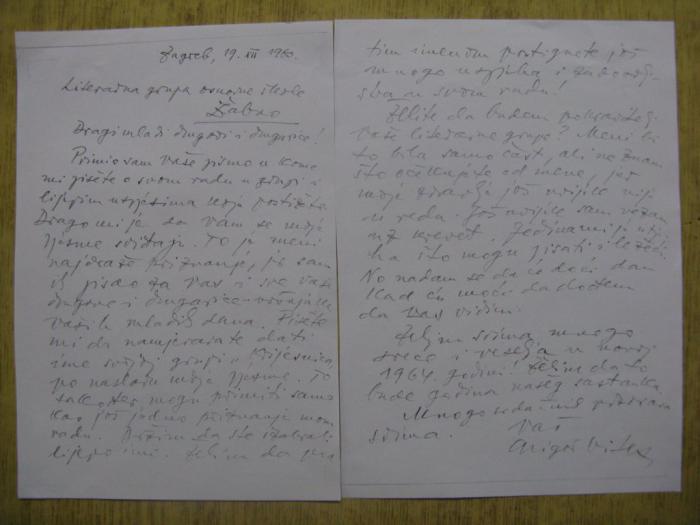 Zagreb, 19. XII 1963.
Literarna grupa osnovne škole
Žabno
Dragi mladi drugovi i drugarice!
Primio sam vaše pismo u kome
mi pišete o svom radu u grupi i
lijepim uspjesima koje postižete.
Drago mi je da vam se moje
pjesme sviđaju. To je meni
najdraže priznanje, jer sam
ih pisao za vas i sve vaše
drugove i drugarice - vršnjake
vaših mladih dana. Pišete
mi da namjeravate dati
ime svojoj grupi "Prijesnica,"
po naslovu moje pjesme. To
također mogu primiti samo
kao još jedno priznanje mom
radu. Držim da ste izabrali
lijepo ime. Želim da pod
tim imenom postignete još
mnogo uspjeha i zadovolj-
stva u svom radu!
Želite da budem pokrovitelj
vaše literarne grupe? Meni bi
to bila samo čast, ali ne znam
što očekujete od mene, jer
moje zdravlje još uvijek nije
u redu. Još uvijek sam vezan
uz krevet. Jedina mi je utje-
ha što mogu pisati i ležeći.
No nadam se da će doći dan
kad ću moći da dođem
da vas vidim.
Želim svima mnogo
sreće i veselja u novoj
1964. godini! Želim da to
bude godina našeg sastanka.
Mnogo vas pozdravlja
svima. Vaš
Grigor Vitez